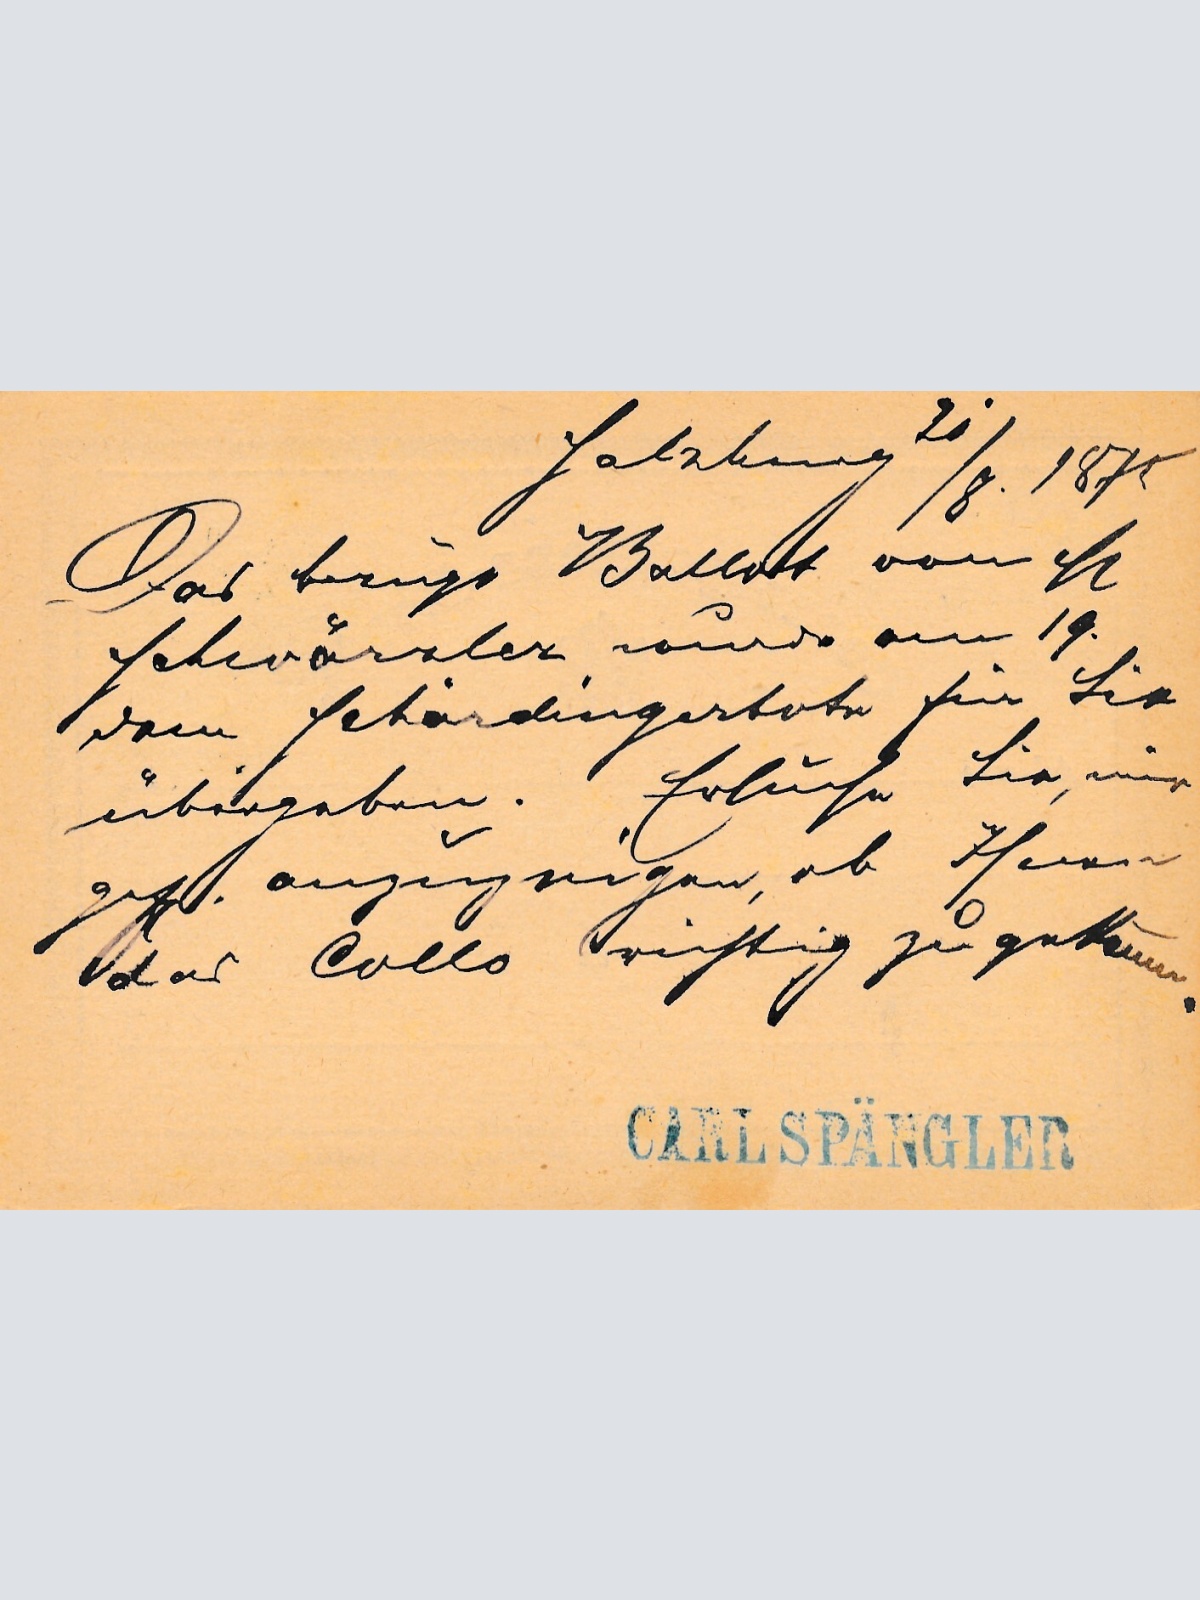 Salzburg 21/8. 1875
Das bezügl Ballott von H
Schwärzler wurde am 19.
dem Schärdingerbote für Sie
übergeben. Ersuche Sie, mir
gefl. anzuzeigen, ob Ihnen
das Collo richtig zugekommen.
CARL SPÄNGLER